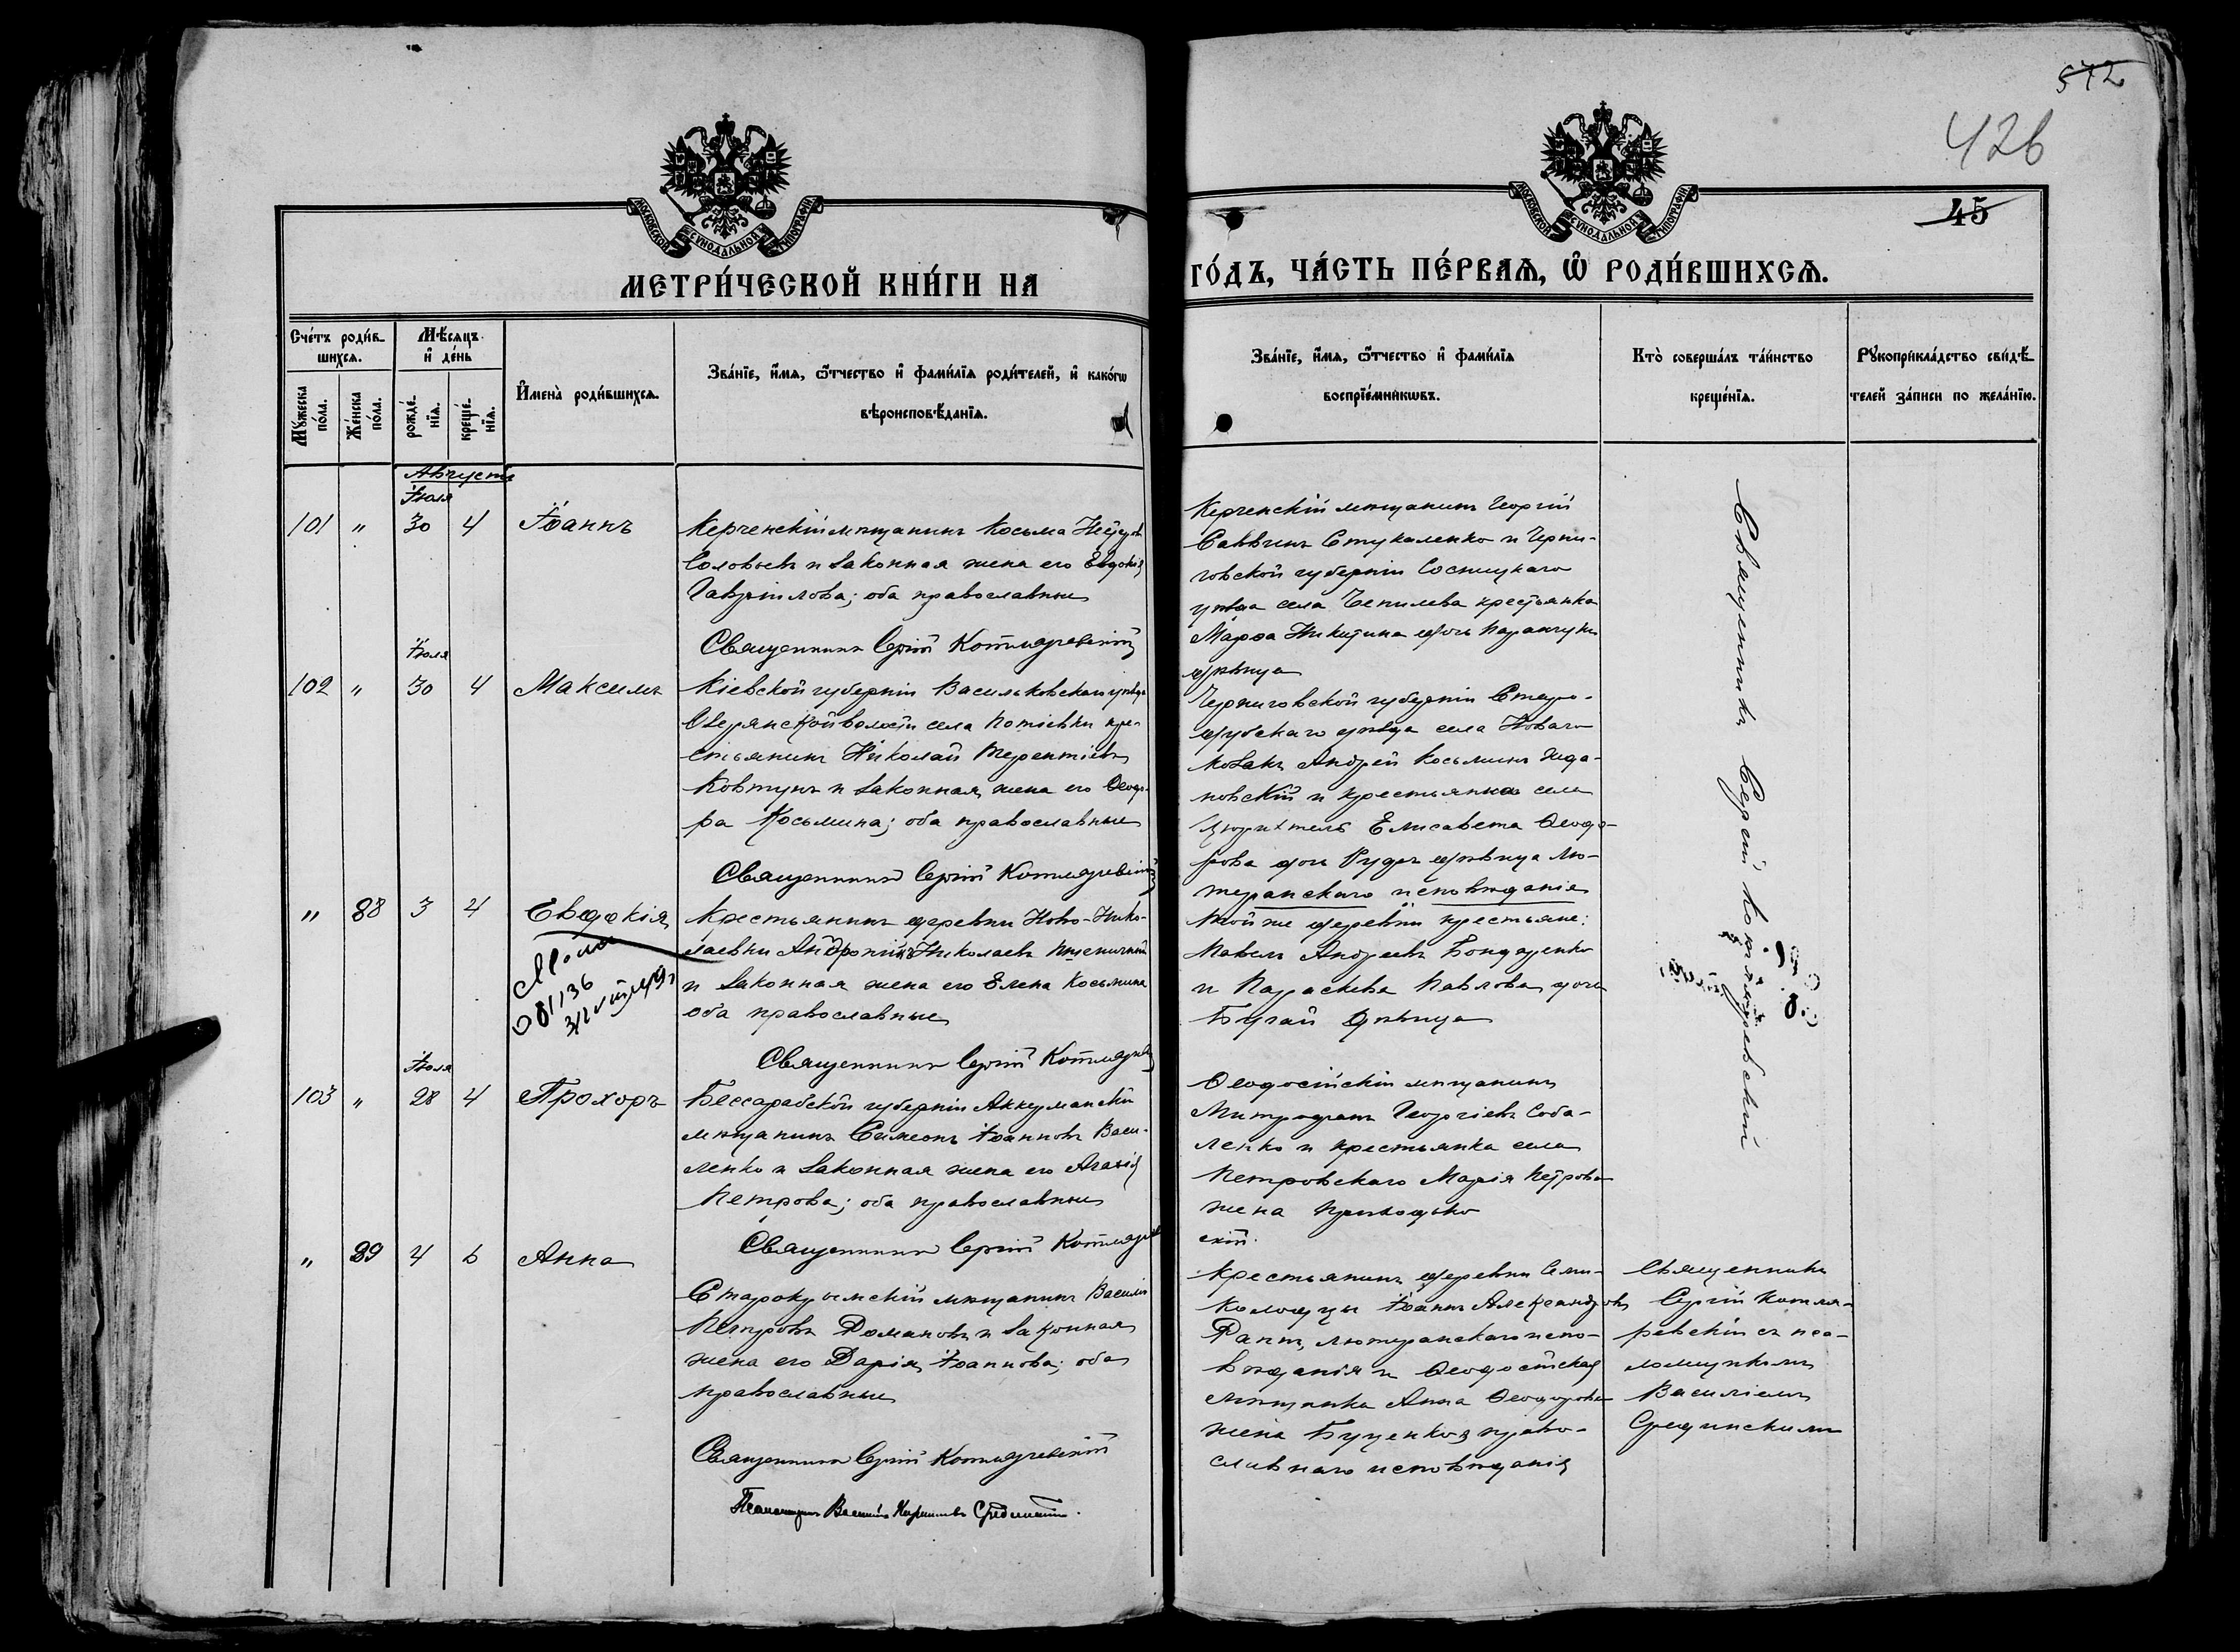 572
426
45
МОСКОВСКОЙ СѴНОДАЛЬНОЙ ТИПОГРАФІИ
МОСКОВСКОЙ СѴНОДАЛЬНОЙ ТИПОГРАФІИ
МЕТРИ́ЧЕСКОЙ КНИ́ГИ НА
ГО́ДЪ, ЧА́СТЬ ПЕ́РВАѦ, Ѡ҆ РОДИ́ВШИХСѦ.
Сче́тъ роди́в-
шихсѧ.
Мꙋ́жеска по́ла.
Же́нска по́ла.
Мѣ́сѧцъ
и҆ де́нь
рожде́-нїѧ.
креще́-нїѧ.
И҆мена̀ роди́вшихсѧ.
Зва́нїе, и҆́мѧ, ѻ҆́тчество и҆ фами́лїѧ роди́телей, и҆ како́гѡ
вѣроисповѣ́данїѧ.
Зва́нїе, и҆́мѧ, ѻ҆́тчество и҆ фами́лїѧ
воспрїе́мникѡвъ.
Кто̀ соверша́лъ та́инство
креще́нїѧ.
Рꙋкоприкла́дство свидѣ́-
телей за́писи по жела́нїю.
Августъ
Іюля
101 " 30 4 Іоаннъ
Керченскій мѣщанинъ Косьма
Соловьевъ и законная жена его Евдокія
Гавріилова; оба православные
Священникъ Сергій Котляревскій
Керченскій мѣщанинъ Георгій
Саввинъ Стукаленко и Черни-
говской губерніи Сосницкаго
уѣзда села крестьянка
Марѳа Никитина дочь
дѣвица
Іюля
102 " 30 4 Максимъ
Кіевской губерніи Васильковскаго уѣзда
волости села кре-
стьянинъ Николай Терентіевъ
Ковтунъ и законная жена его Ѳеодо-
ра Косьмина; оба православные
Священникъ Сергій Котляревскій
Черниговской губерніи Старо-
дубскаго уѣзда села Новаго
козакъ Андрей Косьминъ Жда-
новскій и крестьянка села
Цюрихталь Елисавета Ѳеодо-
рова дочь дѣвица лю-
теранскаго исповѣданія
" 88 3 4 Евдокія
081136
Крестьянинъ деревни Ново-Нико-
лаевки Николаевъ Пшеничный
и законная жена его Елена Косьмина
оба православные
Священникъ Сергій Котляревскій
Той же деревни крестьяне:
Павелъ Андреевъ Бондаренко
и Параскева Павлова дочь
Бугай дѣвица
Іюля
103 " 28 4 Прохоръ
Бессарабской губерніи Аккерманскій
мѣщанинъ Симеонъ Іоанновъ Васи-
ленко и законная жена его Агафія
Петрова; оба православные
Священникъ Сергій Котляревскій
Ѳеодосійскій мѣщанинъ
Митрофанъ Георгіевъ Соба-
ленко и крестьянка села
Петровскаго Марія Петрова
жена Приходько
Священникъ Сергій Котляревскій
" 89 4 6 Анна
Старокрымскій мѣщанинъ Василій
Петровъ Романовъ и законная
жена его Дарія Іоаннова; оба
православные
Священникъ Сергій Котляревскій
Псаломщикъ Василій Срединскій.
Крестьянинъ деревни Семи-
Колодцы Іоаннъ Александровъ
лютеранскаго испо-
вѣданія и Ѳеодосійская
мѣщанка Анна Ѳеодорова
жена Буценко, право-
славнаго исповѣданія
Священникъ
Сергій Котля-
ревскій съ пса-
ломщикомъ
Василіемъ
Срединскимъ